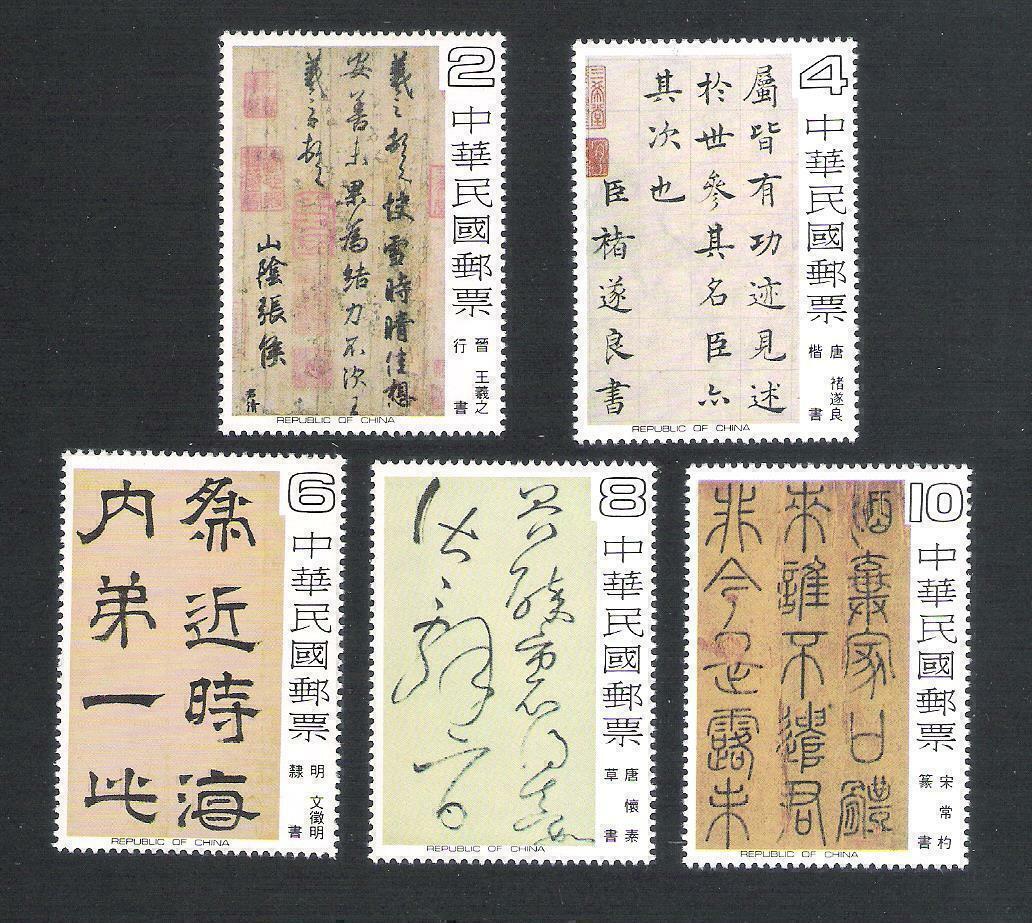 2
中華民國郵票
晉 王羲之
行書
羲之頓首快雪時晴佳想
安善未果為結力不次王
羲之頓首
山陰張侯
君倩
REPUBLIC OF CHINA
4
中華民國郵票
唐 褚遂良
楷書
屬皆有功迹見述
於世參其名臣亦
其次也
臣褚遂良書
三希堂
REPUBLIC OF CHINA
6
中華民國郵票
明 文徵明
隸書
為近時海
內弟一此
REPUBLIC OF CHINA
8
中華民國郵票
唐 懷素
草書
REPUBLIC OF CHINA
10
中華民國郵票
宋 常杓
篆書
酒棄家口體
來誰不遣君
非今是露未
REPUBLIC OF CHINA